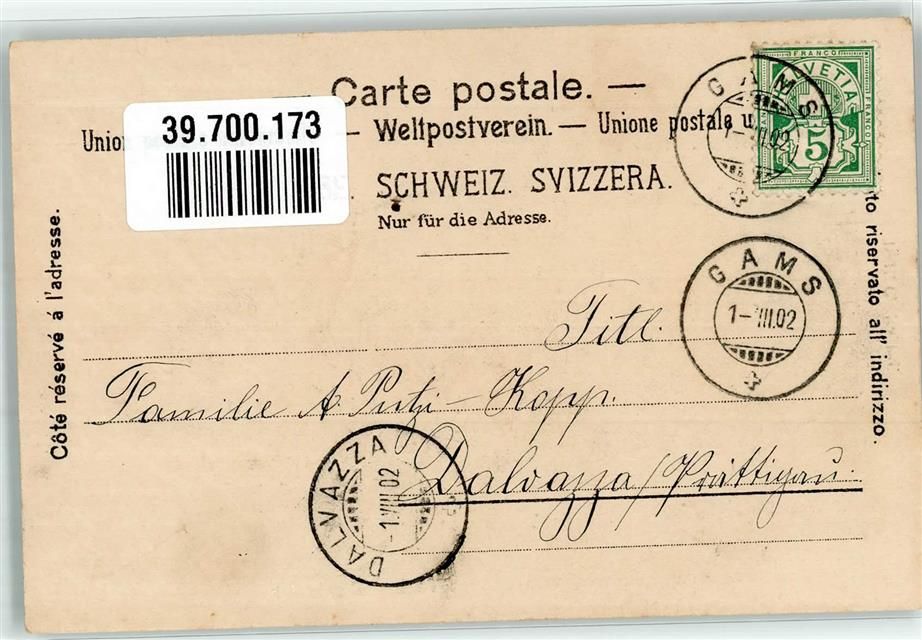 — Carte postale. —
39.700.173
Union — Weltpostverein. — Unione postale u
SCHWEIZ. SVIZZERA.
Nur für die Adresse.
FRANCO
HELVETIA
FRANCO
5
GAMS
1-VIII.02
GAMS
1-VIII.02
Côté réservé á l'adresse.
riservato all' indirizzo.
Titl.
Familie A. Putzi-Kopp.
Dalvazza/Prättigau.
DALVAZZA
-1.VIII.02